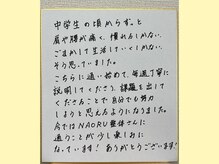 中学生の頃からずっと
肩や腰が痛く、慣れるしかない、
ごまかして生活していくしかない、
そう思っていました。
こちらに通い始めて、毎週丁寧に
説明してくださり課題を出して
くださることで自分でも努力
しようと思えるようになりました。
今ではNAORU整体さんに
通うことが少し楽しみに
なっています！ありがとうございます！